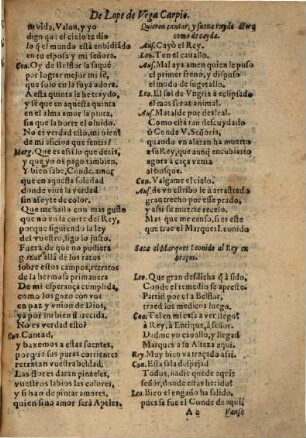 De Lope de Vega Carpio.
tu vida, Valon, y yo
digo que el cielo te dio
lo q̃ el mundo està embidiãdo
en tu esposa y mi señora.
Con. Oy de Belflor la saquè
por lograr mejor mi fè,
que solo en la suya adora.
A esta quinta la he traydo,
y sè que en aquesta quinta
en el alma amor la pinta,
sin que la borre el oluido.
No es verdad esto, mi bien
de mi aficion que sentis?
Marg. Que es assi lo que dezis,
y que yo os pago tambien.
Y bien sabe, Conde, amor
que en aquesta soledad
donde vuue la verdad
sin afeyte de color.
Que me hallo con mas gusto
que no en la corte del Rey,
porque siguiendo la ley
del vuestro, sigo lo justo.
Fuera de que no pudiera
gozar allà de los ratos
sobre estos campos, retratos
de la hermosa primauera
De mi esperança cumplida,
como los gozo con vos
en paz y vnion de Dios,
ya por mi bien merecida.
No es verdad esto?
Con. Cantad,
y baxemos a estas fuentes,
porque sus puras corrientes
retratan vuestra beldad.
Las flores daràn pinzeles,
vuestros labios las colores,
y si han de pintar amores,
quien sino amor serà Apeles.
Quieren cantar, y suena ruydo
como de cayda.
Auf. Cayò el Rey.
Leo. Ten el cauallo.
Auf. Mal aya amen quien le puso
el primer freno, y dispuso
el modo de sugetallo.
Leo. El sol de Vngria è eclipsado
el mas feroz animal.
Auf. Matalde por desleal.
Como està tan descuydado
ò Conde V. Señoria,
quando vn alazan ha muerto
a su Rey, que aun q̃ encubierto
agora a caça venia
al bosque.
Con. Valgame el cielo.
Auf. de vn estribo le à arrastrado
gran trecho por esse prado,
y assi su muerte recelo.
Mas que me canso, si es este
que trae el Marques Leonido
Saca el Marques Leonido al Rey en
braços.
Leo. Que gran desdicha q̃ à sido,
Conde el remedio se apreste.
Partid por el a Belflor,
traed los medicos luego.
Con. Talen mi casa a ver llego
à Rey, à Enrique, à señor.
Dadme vn cauallo, y llegad
Marques a su Alteza aqui.
Rey. Muy bien va traçado assi.
Con. Esta sala despejad
Todos, nadie quede aqui:
señor, donde estas herido?
Leo. Bien el engaño ha salido,
pues se fue el Conde de aqui,
A 2
Vanse